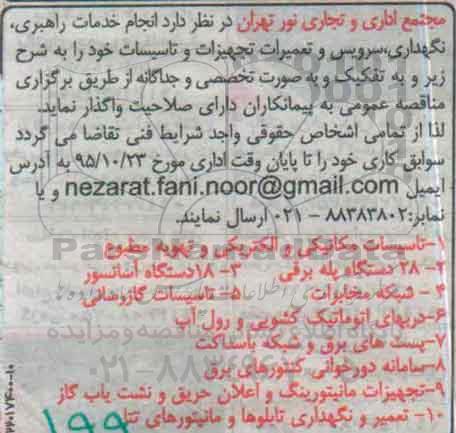 مجتمع اداری و تجاری نور تهران در نظر دارد انجام خدمات راهبری،
نگهداری،سرویس و تعمیرات تجهیزات و تاسیسات خود را به شرح
زیر و به تفکیک و به صورت تخصصی و جداگانه از طریق برگزاری
مناقصه عمومی به پیمانکاران دارای صلاحیت واگذار نماید.
لذا از تمامی اشخاص حقوقی واجد شرایط فنی تقاضا می گردد
سوابق کاری خود را تا پایان وقت اداری مورخ ۹۵/۱۰/۲۳ به آدرس
ایمیل nezarat.fani.noor@gmail.com و یا
نمابر:۸۸۳۸۳۸۰۲ – ۰۲۱ ارسال نمایند.
۱-تاسیسات مکانیکی و الکتریکی و تهویه مطبوع
۲- ۲۸ دستگاه پله برقی ۳- ۱۸دستگاه آسانسور
۴ - شبکه مخابرات ۵- تاسیسات گازرسانی
۶-دربهای اتوماتیک کشویی و رول آپ
۷-پست های برق و شبکه باسداکت
۸-سامانه دورخوانی کنتورهای برق
۹-تجهیزات مانیتورینگ و اعلان حریق و نشت یاب گاز
۱۰- تعمیر و نگهداری تابلوها و مانیتورهای
۱۹۹